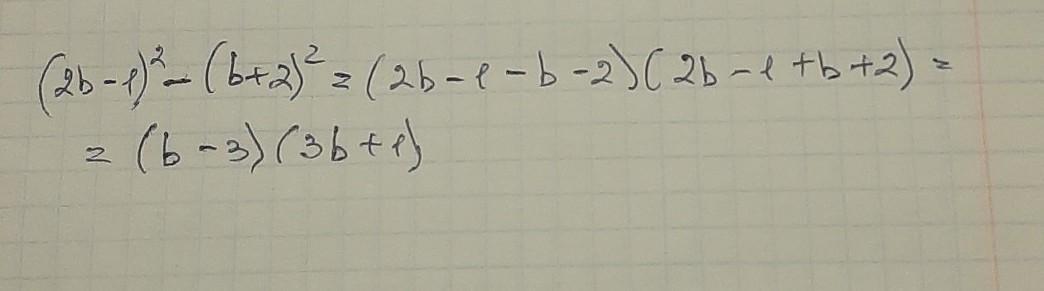 (2b-1)²-(b+2)²=(2b-1-b-2)(2b-1+b+2)=
=(b-3)(3b+1)